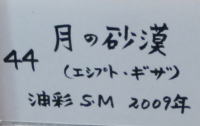 44 月の砂漠
(エジプト・ギザ)
油彩 S.M 2009年